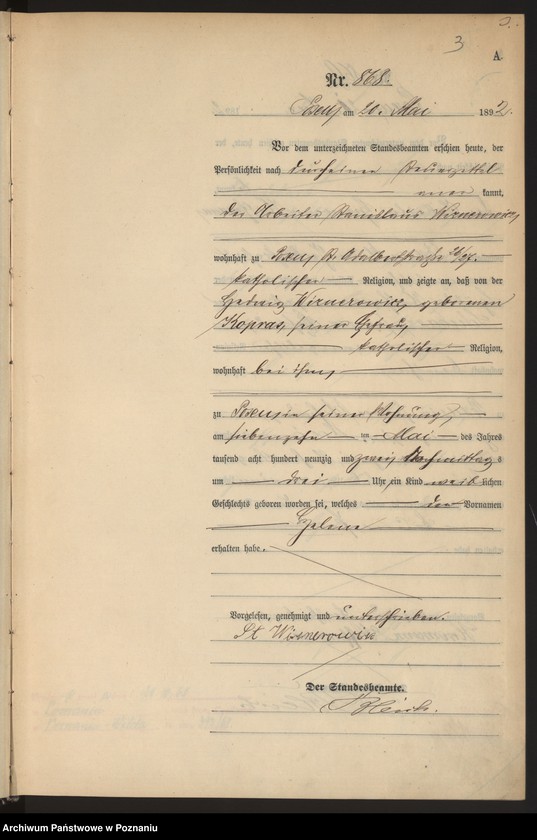 3
A
Nr. 868.
Posen am 20. Mai 1892.
Vor dem unterzeichneten Standesbeamten erschien heute, der
Persönlichkeit nach durch einen Steuerzettel
kannt,
der Arbeiter Stanislaus Wiznerowicz,
wohnhaft zu Posen, St. Adalbertstraße 26/27.
katholischer Religion, und zeigte an, daß von der
Hedwig Wiznerowicz, geborenen
Kopras, seiner Ehefrau,
katholischer Religion,
wohnhaft bei ihm,
zu Posen in seiner Wohnung,
am siebenzehnten Mai des Jahres
tausend acht hundert neunzig und zwei, Nachmittags
um drei Uhr, ein Kind weiblichen
Geschlechts geboren worden sei, welches den Vornamen
Helene
erhalten habe.
Vorgelesen, genehmigt und unterschrieben.
St Wiznerowicz
Der Standesbeamte.
Archiwum Państwowe w Poznaniu